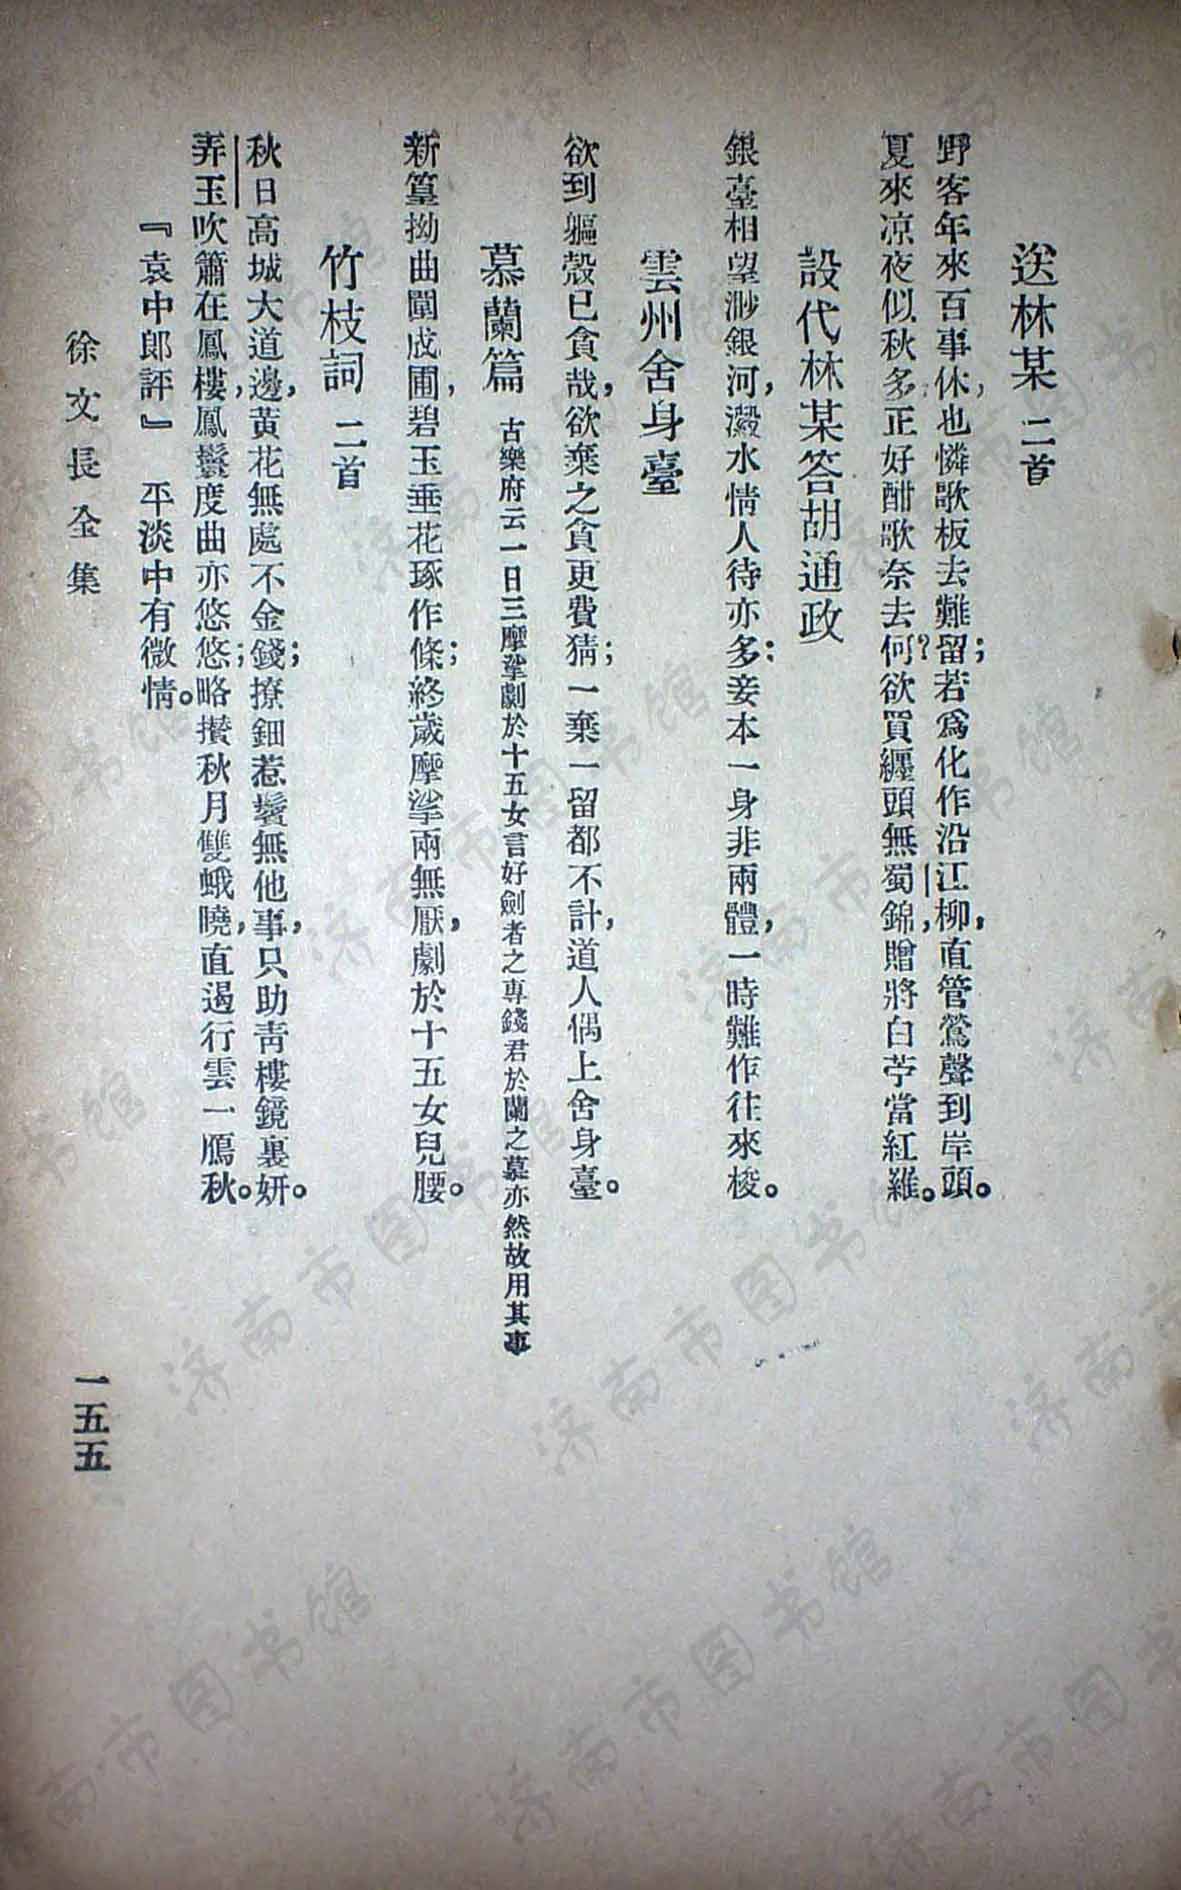 送林某 二首
野客年來百事休，也憐歌板去難留；若爲化作沿江柳，直管鶯聲到岸頭。
夏來凉夜似秋多，正好酣歌奈去何？欲買纏頭無蜀錦，贈將白苧當紅羅。
設代林某答胡通政
銀臺相望渺銀河，澱水情人待亦多；妾本一身非兩體，一時難作往來梭。
雲州舍身臺
欲到軀殼已貪哉，欲棄之貪更費猜；一棄一留都不計，道人偶上舍身臺。
慕蘭篇 古樂府云一日三摩挲劇於十五女言好劍者之專錢君於蘭之慕亦然故用其事
新篁拗曲闈成圃，碧玉垂花琢作條；終歲摩挲兩無厭，劇於十五女兒腰。
竹枝詞 二首
秋日高城大道邊，黃花無處不金錢；撩鈿惹鬢無他事，只助靑樓鏡裏妍。
弄玉吹簫在鳳樓，鳳鬟度曲亦悠悠；略攅秋月雙蛾曉，直遏行雲一鴈秋。
『袁中郎評』 平淡中有微情。
徐文長全集
一五五
济南市图书馆